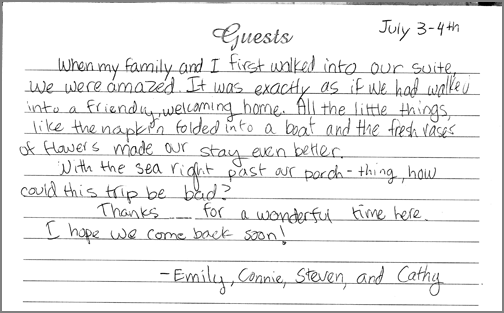 Guests
July 3-4th
When my family and I first walked into our suite,
we were amazed. It was exactly as if we had walked
into a friendly, welcoming home. All the little things,
like the napkin folded into a boat and the fresh vases
of flowers made our stay even better.
With the sea right past our porch-thing, how
could this trip be bad?
Thanks for a wonderful time here.
I hope we come back soon!
-Emily, Connie, Steven, and Cathy